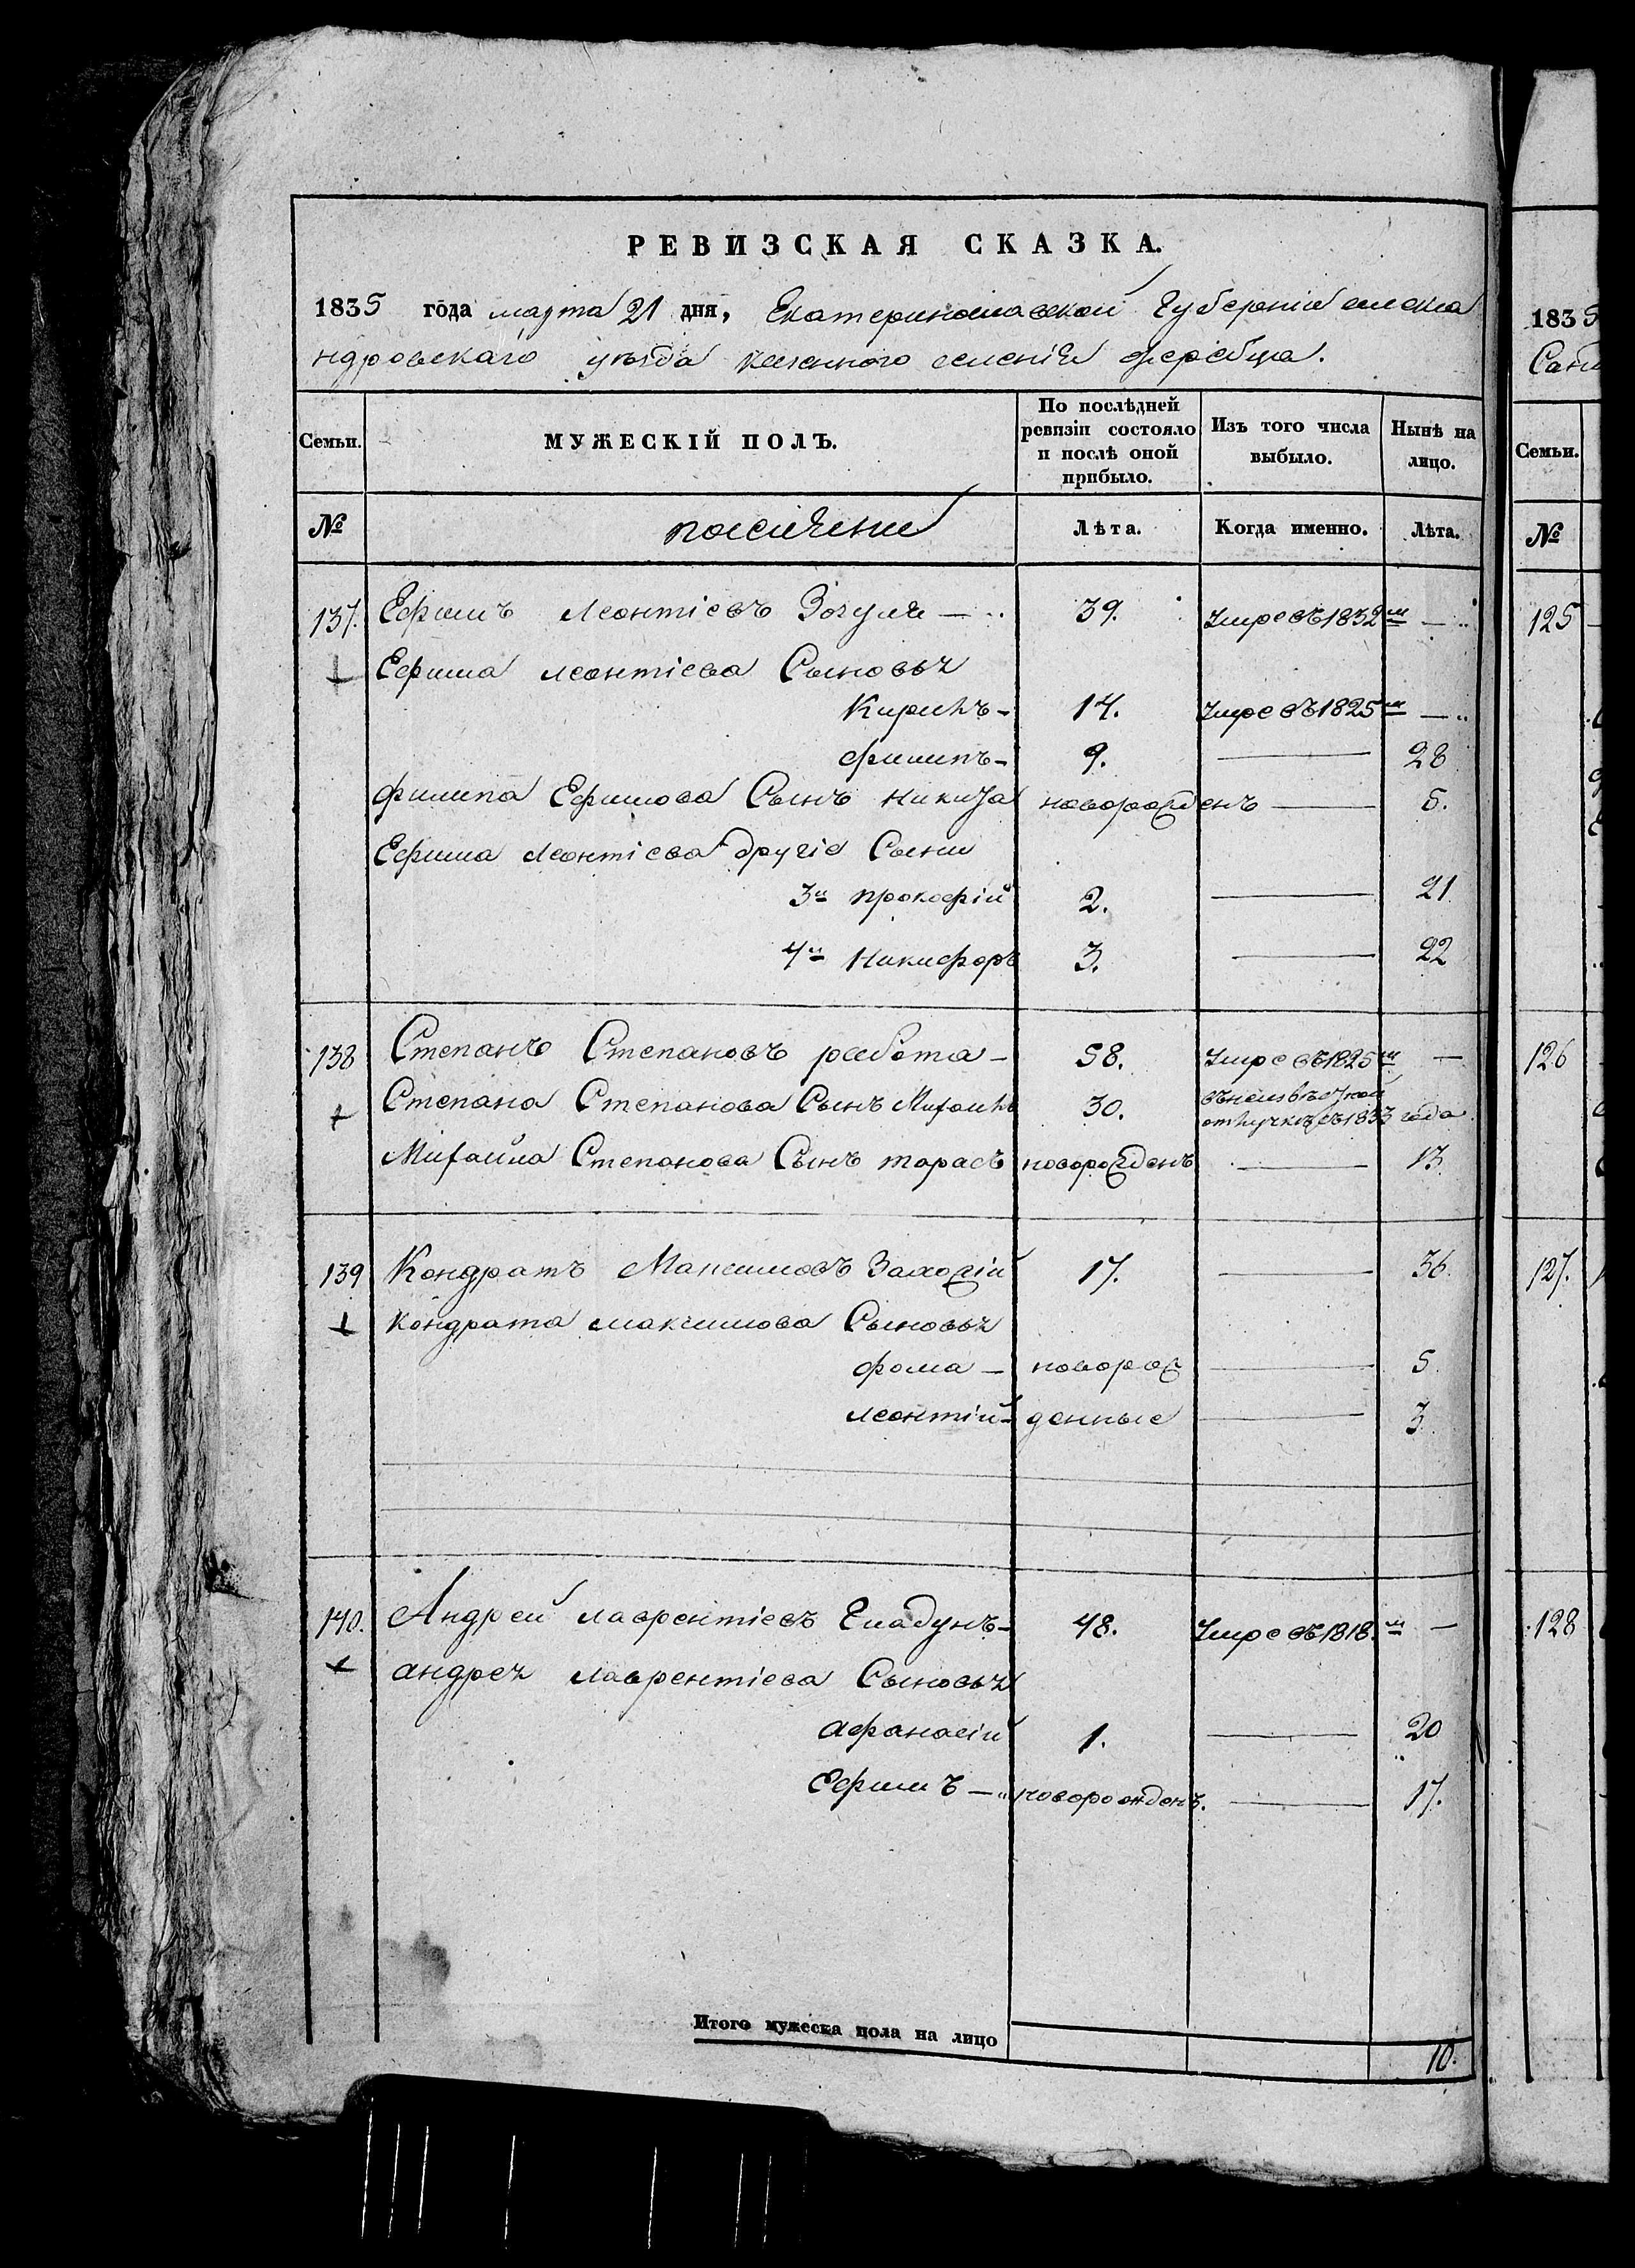 РЕВИЗСКАЯ СКАЗКА.
1835 года марта 21 дня, Екатеринославской Губерніи алекса
ндровскаго уѣзда казенного селенія жеребца.
Семьи.
МУЖЕСКІЙ ПОЛЪ.
По послѣдней ревизіи состояло и послѣ оной прибыло.
Изъ того числа выбыло.
Нынѣ на лицо.
№
Лѣта.
Когда именно.
Лѣта.
137. Ефимъ Леонтіевъ Зозуля — 39. Умре въ 1832м —
Ефима леонтіева Сыновья
Кирилъ - 14. Умре въ 1825м —
филипъ - 9. — 28
филипа Ефимова Сынъ никита новорожденъ — 5.
Ефима Леонтіева другіе Сыни
3й прокофій 2. — 21.
4й Никифоръ 3. — 22
138 Степанъ Степановъ работа - 58. Умре въ 1825м —
Степана Степанова Сынъ Михаилъ 30. въ неизвѣстной
отлучкѣ съ 1833 года
Михайла Степанова Сынъ тарасъ новорожденъ — 13.
139 Кондратъ Максимовъ 17. — 36.
Кондрата максимова Сыновья
фома — новорож — 5.
леонтій - денные — 3.
140. Андрей лаврентіевъ Гладунъ - 48. Умре въ 1818.м —
андрея лаврентіева Сыновья
афанасій 1. — 20
Ефимъ — новорожденъ. — 17.
Итого мужеска пола на лицо 10.
1835
Семьи.
№
125
126
127.
128